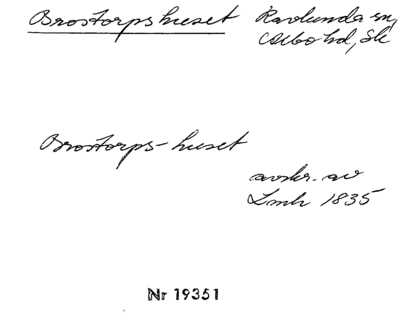 Brostorpshuset Ravlunda sn,
Albo hd, Sk
Brostorps-huset
avskr. av
Lmh 1835
Nr 19351